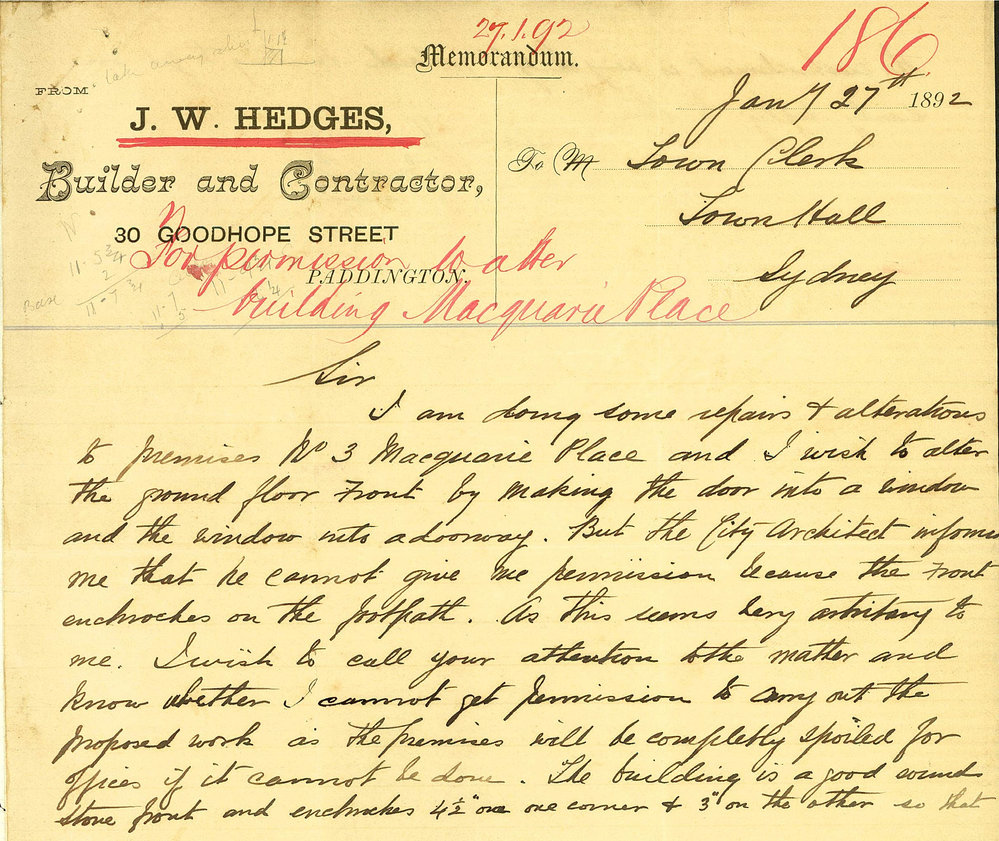 27.1.92
186
Memorandum.
FROM
J. W. HEDGES,
Builder and Contractor,
30 GOODHOPE STREET
PADDINGTON.
Jany 27th 1892
To M Town Clerk
Town Hall
Sydney
For permission to alter
building Macquarie Place
Sir
I am doing some repairs & alterations
to premises No 3 Macquarie Place and I wish to alter
the ground floor Front by making the door into a window
and the window into a doorway. But the City Architect informs
me that he cannot give me permission because the Front
enchroches on the footpath. As this seems very arbitrary to
me. I wish to call your attention to the matter and
know whether I cannot get permission to carry out the
proposed work as the premises will be completly spoiled for
offices if it cannot be done. The building is a good sound
stone front and enchroches 4½" one corner & 3" on the other so that